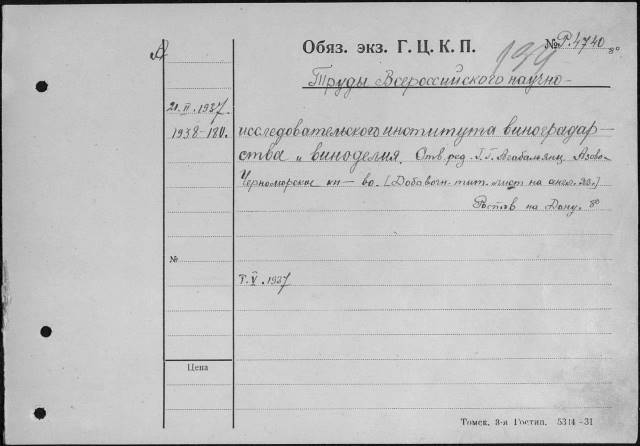 А
Обяз. экз. Г. Ц. К. П.
№ Р. 4740 8°
139
Труды Всероссийского научно-
21.II.1937
1938-180.
исследовательского института виноградар-
ства и виноделия. Отв. ред. Г. Г. Агабальянц Азово-
Черноморское кн-во. [Добавочн. тит. лист на англ. яз.]
Ростов на Дону. 8°
№
Т. V. 1937
Цена
Томск. 3-я Гостип. 5314-31